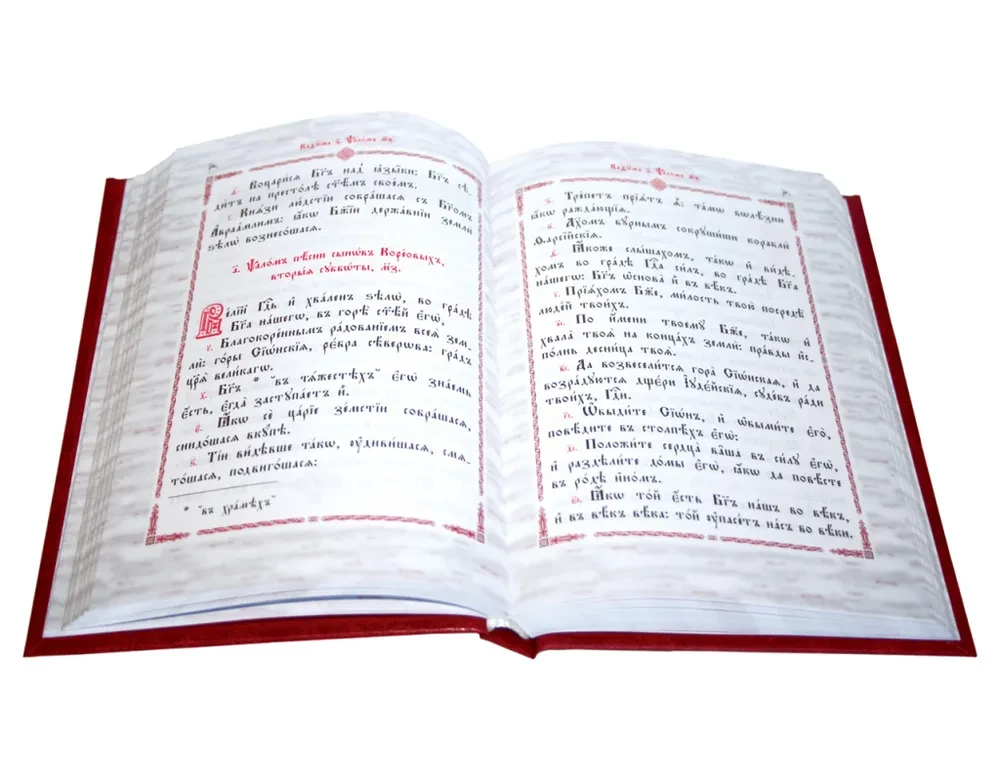 Каѳі́сма Ѱало́мъ
д҃. Воцари́сѧ Бг҃ъ над̾ ꙗ҆зы̑ки: Бг҃ъ сѣ-
ди́тъ на престо́лѣ ст҃ѣ́мъ свое́мъ.
Кнѧ̑зи лю́дстїи собра́шасѧ съ Бг҃омъ
Авраа́млимъ: ꙗ҆́кѡ Бж҃їи держа́внїи землѝ
ѕѣлѡ̀ вознесо́шасѧ.
Ѱало́мъ пѣ́сни сынѡ́въ Коре́овыхъ,
вторы́ѧ сꙋббѡ́ты, мз҃.
Ве́лїй Гд҇ь и҆ хва́ленъ ѕѣлѡ̀, во гра́дѣ
Бг҃а на́шегѡ, въ горѣ̀ ст҃ѣ́й є҆гѡ̀,
г҃. Благокоре́ннымъ ра́дованїемъ всеѧ̀ зем-
лѝ: го́ры Сїѡ̑нскїѧ, ре́бра сѣ́верѡва: гра́дъ
цр҃ѧ̀ вели́кагѡ.
Бг҃ъ * ̾въ тѧ́жестехъ̾ є҆гѡ̀ зна́емь
є҆́сть, є҆гда̀ застꙋпа́етъ и҆̀.
Ꙗ҆́кѡ сѐ ца́рїе зе́мстїи собра́шасѧ,
снидо́шасѧ вкꙋ́пѣ.
Ті́и ви́дѣвше та́кѡ, ᲂу҆диви́шасѧ, смѧ-
то́шасѧ, подвиго́шасѧ:
* ̾въ хра́мѣхъ̾
Каѳі́сма Ѱало́мъ
Тре́петъ прїѧ́тъ ѧ҆̀: та́мѡ болѣ̑зни
ꙗ҆́кѡ ражда́ющїѧ.
Дх҃омъ бꙋ́рнымъ сокрꙋши́ши корабли̑
Ѳарсі̑йскїѧ.
Ꙗ҆́коже слы́шахомъ, та́кѡ и҆ ви́дѣ-
хомъ во гра́дѣ Гд҇а си́лъ, во гра́дѣ Бг҃а
на́шегѡ: Бг҃ъ ѡ҆снова̀ и҆̀ въ вѣ́къ.
Прїѧ́хомъ Бж҃е, ми́лость твою̀ посредѣ̀
люде́й твои́хъ.
По и҆́мени твоемꙋ̀ Бж҃е, та́кѡ и҆
хвала̀ твоѧ̀ на конца́хъ землѝ: пра́вды и҆с-
по́лнь десни́ца твоѧ̀.
Да возвесели́тсѧ гора̀ Сїѡ́нскаѧ, и҆ да
возра́дꙋютсѧ дщє́ри І҆ꙋде́йскїѧ, сꙋде́бъ ра́ди
твои́хъ, Гд҇и.
Ѡ҆бы́дите Сїѡ́нъ, и҆ ѡ҆бы́мите є҆го̀,
повѣ́дите въ столпѣ́хъ є҆гѡ̀:
Положи́те сердца̀ ва̑ша въ си́лꙋ є҆гѡ̀,
и҆ раздѣли́те до́мы є҆гѡ̀, ꙗ҆́кѡ да повѣ́сте
въ ро́дѣ и҆́номъ.
Ꙗ҆́кѡ то́й є҆́сть Бг҃ъ на́шъ во вѣ́къ,
и҆ въ вѣ́къ вѣ́ка: то́й ᲂу҆пасе́тъ на́съ во вѣ́ки.